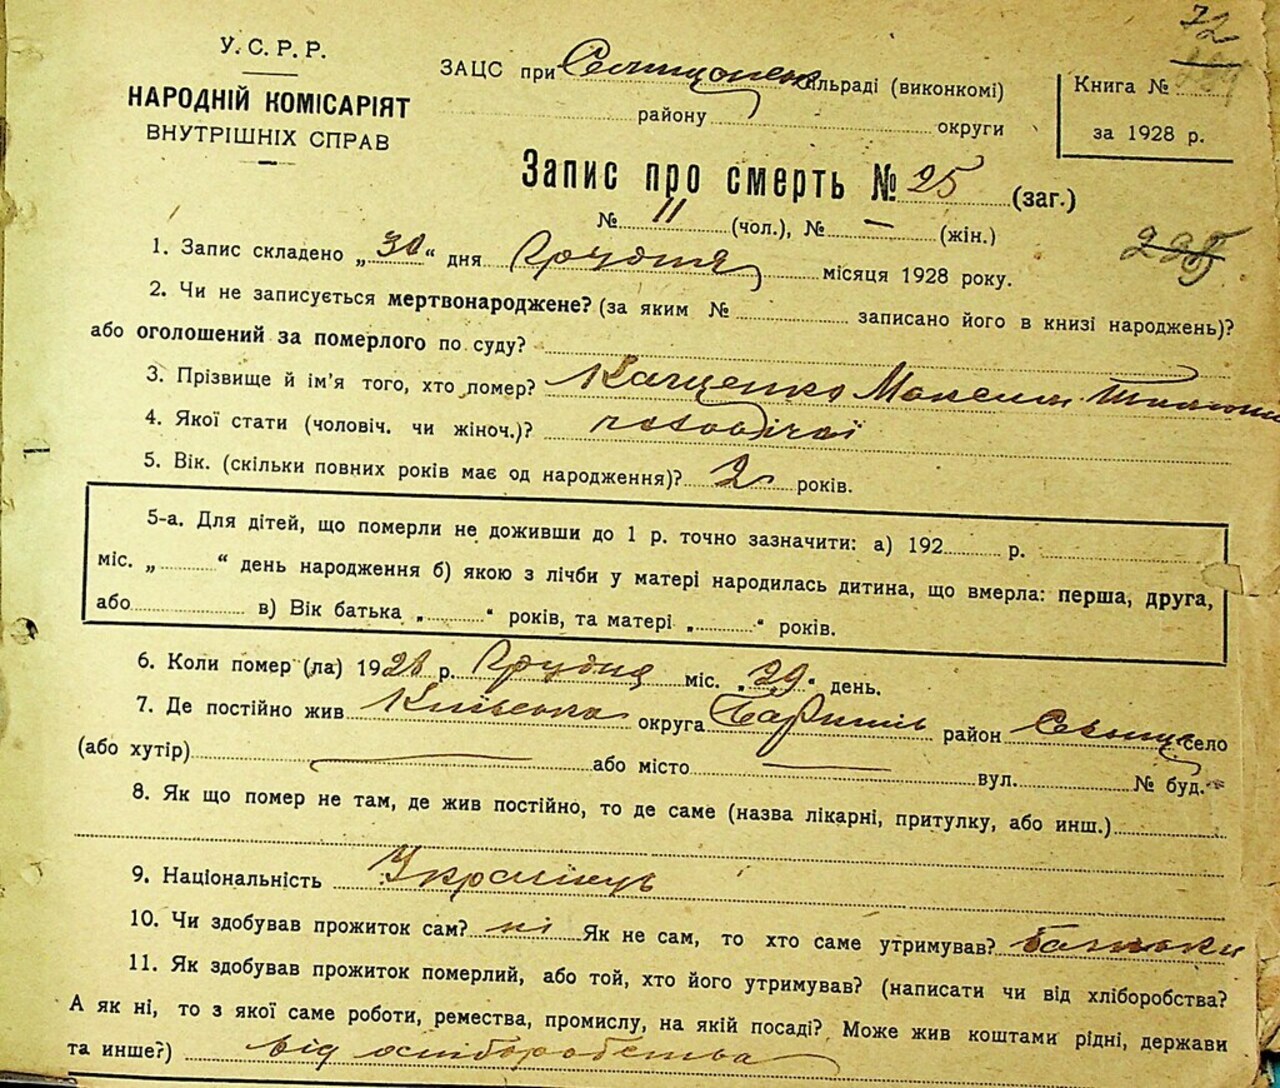 72
У. С. Р. Р.
НАРОДНІЙ КОМІСАРІЯТ
ВНУТРІШНІХ СПРАВ
ЗАЦС при сільраді (виконкомі)
району округи
Книга №
за 1928 р.
Запис про смерть № 25 (заг.)
№ 11 (чол.), № — (жін.)
235
1. Запис складено „30“ дня Грудня місяця 1928 року.
2. Чи не записується мертвонароджене? (за яким № записано його в книзі народжень)?
або оголошений за померлого по суду?
3. Прізвище й ім'я того, хто помер? Кащенко Максим
4. Якої стати (чоловіч. чи жіноч.)? чоловічої
5. Вік. (скільки повних років має од народження)? 2 років.
5-а. Для дітей, що померли не доживши до 1 р. точно зазначити: а) 192 р.
міс. „ “ день народження б) якою з лічби у матері народилась дитина, що вмерла: перша, друга,
або в) Вік батька „ “ років, та матері „ “ років.
6. Коли помер (ла) 1928 р. Грудня міс. „29“ день.
7. Де постійно жив Київська округа Баришів район село
(або хутір) — або місто — вул. № буд.
8. Як що помер не там, де жив постійно, то де саме (назва лікарні, притулку, або инш.)
9. Національність Українець
10. Чи здобував прожиток сам? ні Як не сам, то хто саме утримував? батьки
11. Як здобував прожиток померлий, або той, хто його утримував? (написати чи від хліборобства?
А як ні, то з якої саме роботи, ремества, промислу, на якій посаді? Може жив коштами рідні, держави
та инше?) від хліборобства